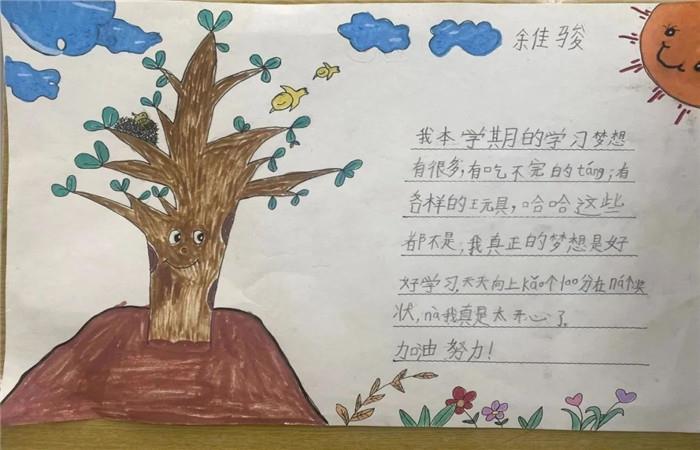 余佳骏
我本学期的学习梦想
有很多,有吃不完的táng;有
各样的玩具,哈哈这些
都不是,我真正的梦想是好
好学习,天天向上kǎo个100分在ná个奖
状,nà我真是太开心了。
加油努力!